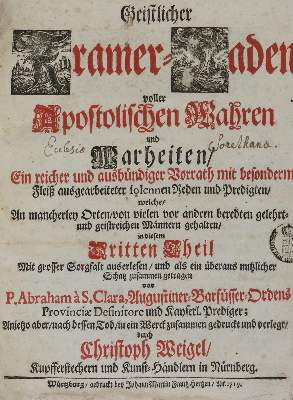 Geistlicher
Kramer-Laden
voller
Apostolischen Wahren
und
Warheiten/
Ecclesia Sorethana
Ein reicher und ausbündiger Vorrath mit besonderm
Fleiß ausgearbeiteter solennen Reden und Predigten/
welche/
An mancherley Orten/von vielen vor andern beredten gelehrt-
und geistreichen Männern gehalten/
in diesem
Dritten Theil
Mit grosser Sorgfalt auserlesen/und als ein überaus nützlicher
Schatz zusammen getragen
von
P. Abraham à S. Clara, Augustiner-Barfüsser-Ordens
Provinciæ Definitore und Kayserl. Prediger;
Anjetzo aber/nach dessen Tod/in ein Werck zusammen gedruckt und verlegt/
durch
Christoph Weigel/
Kupfferstechern und Kunst-Händlern in Nürnberg.
Würtzburg/gedruckt bey Johann Martin Frantz Hertzen/An. 1719.